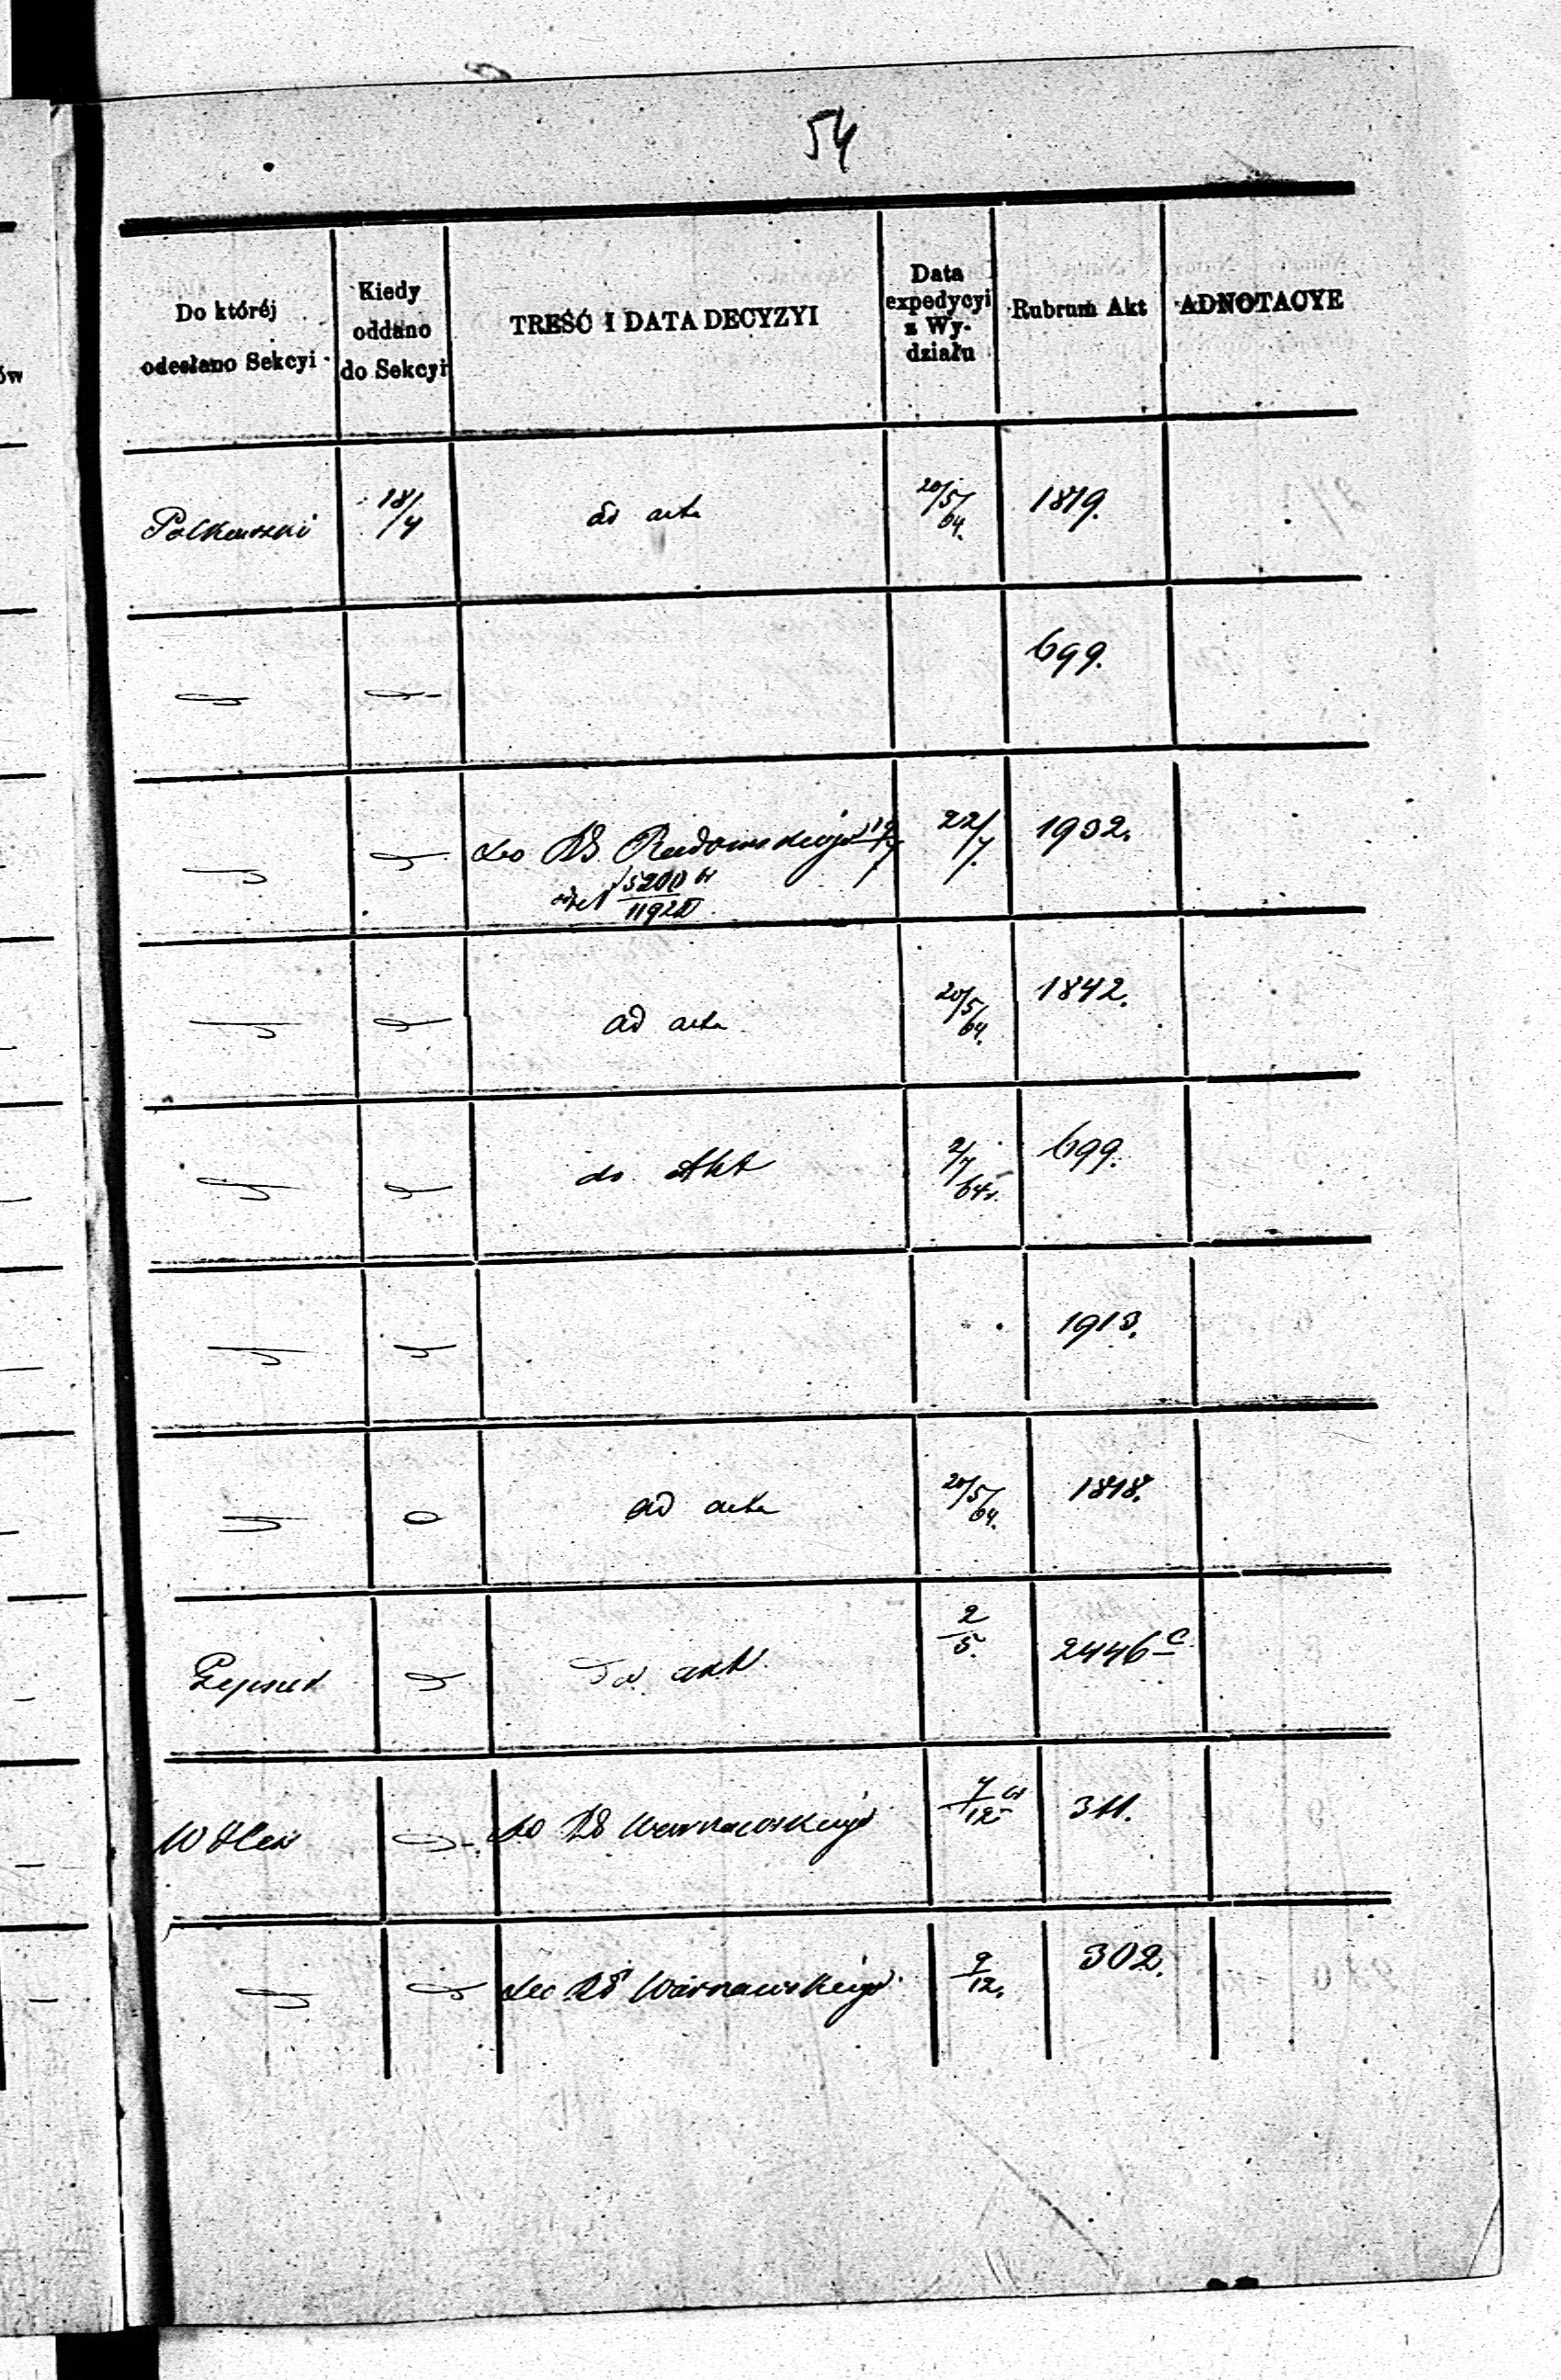 54
ów
Do której
odesłano Sekcyi
Kiedy
oddano
do Sekcyi
TREŚĆ I DATA DECYZYI
Data
expedycyi
z Wy-
działu
Rubrum Akt
ADNOTACYE
18/4
ad acta
20/5/64.
1819.
699.
do RG Radomskiego
5200
1192
22/7.
1902.
ad acta
20/5/64.
1842.
do Akt
2/7 64 r.
699.
1913.
ad acta
20/5/64.
1818.
do akt
2/5.
2446 c
do RG Warszawskiego
7/12
311.
do RG Warszawskiego
9/12.
302.